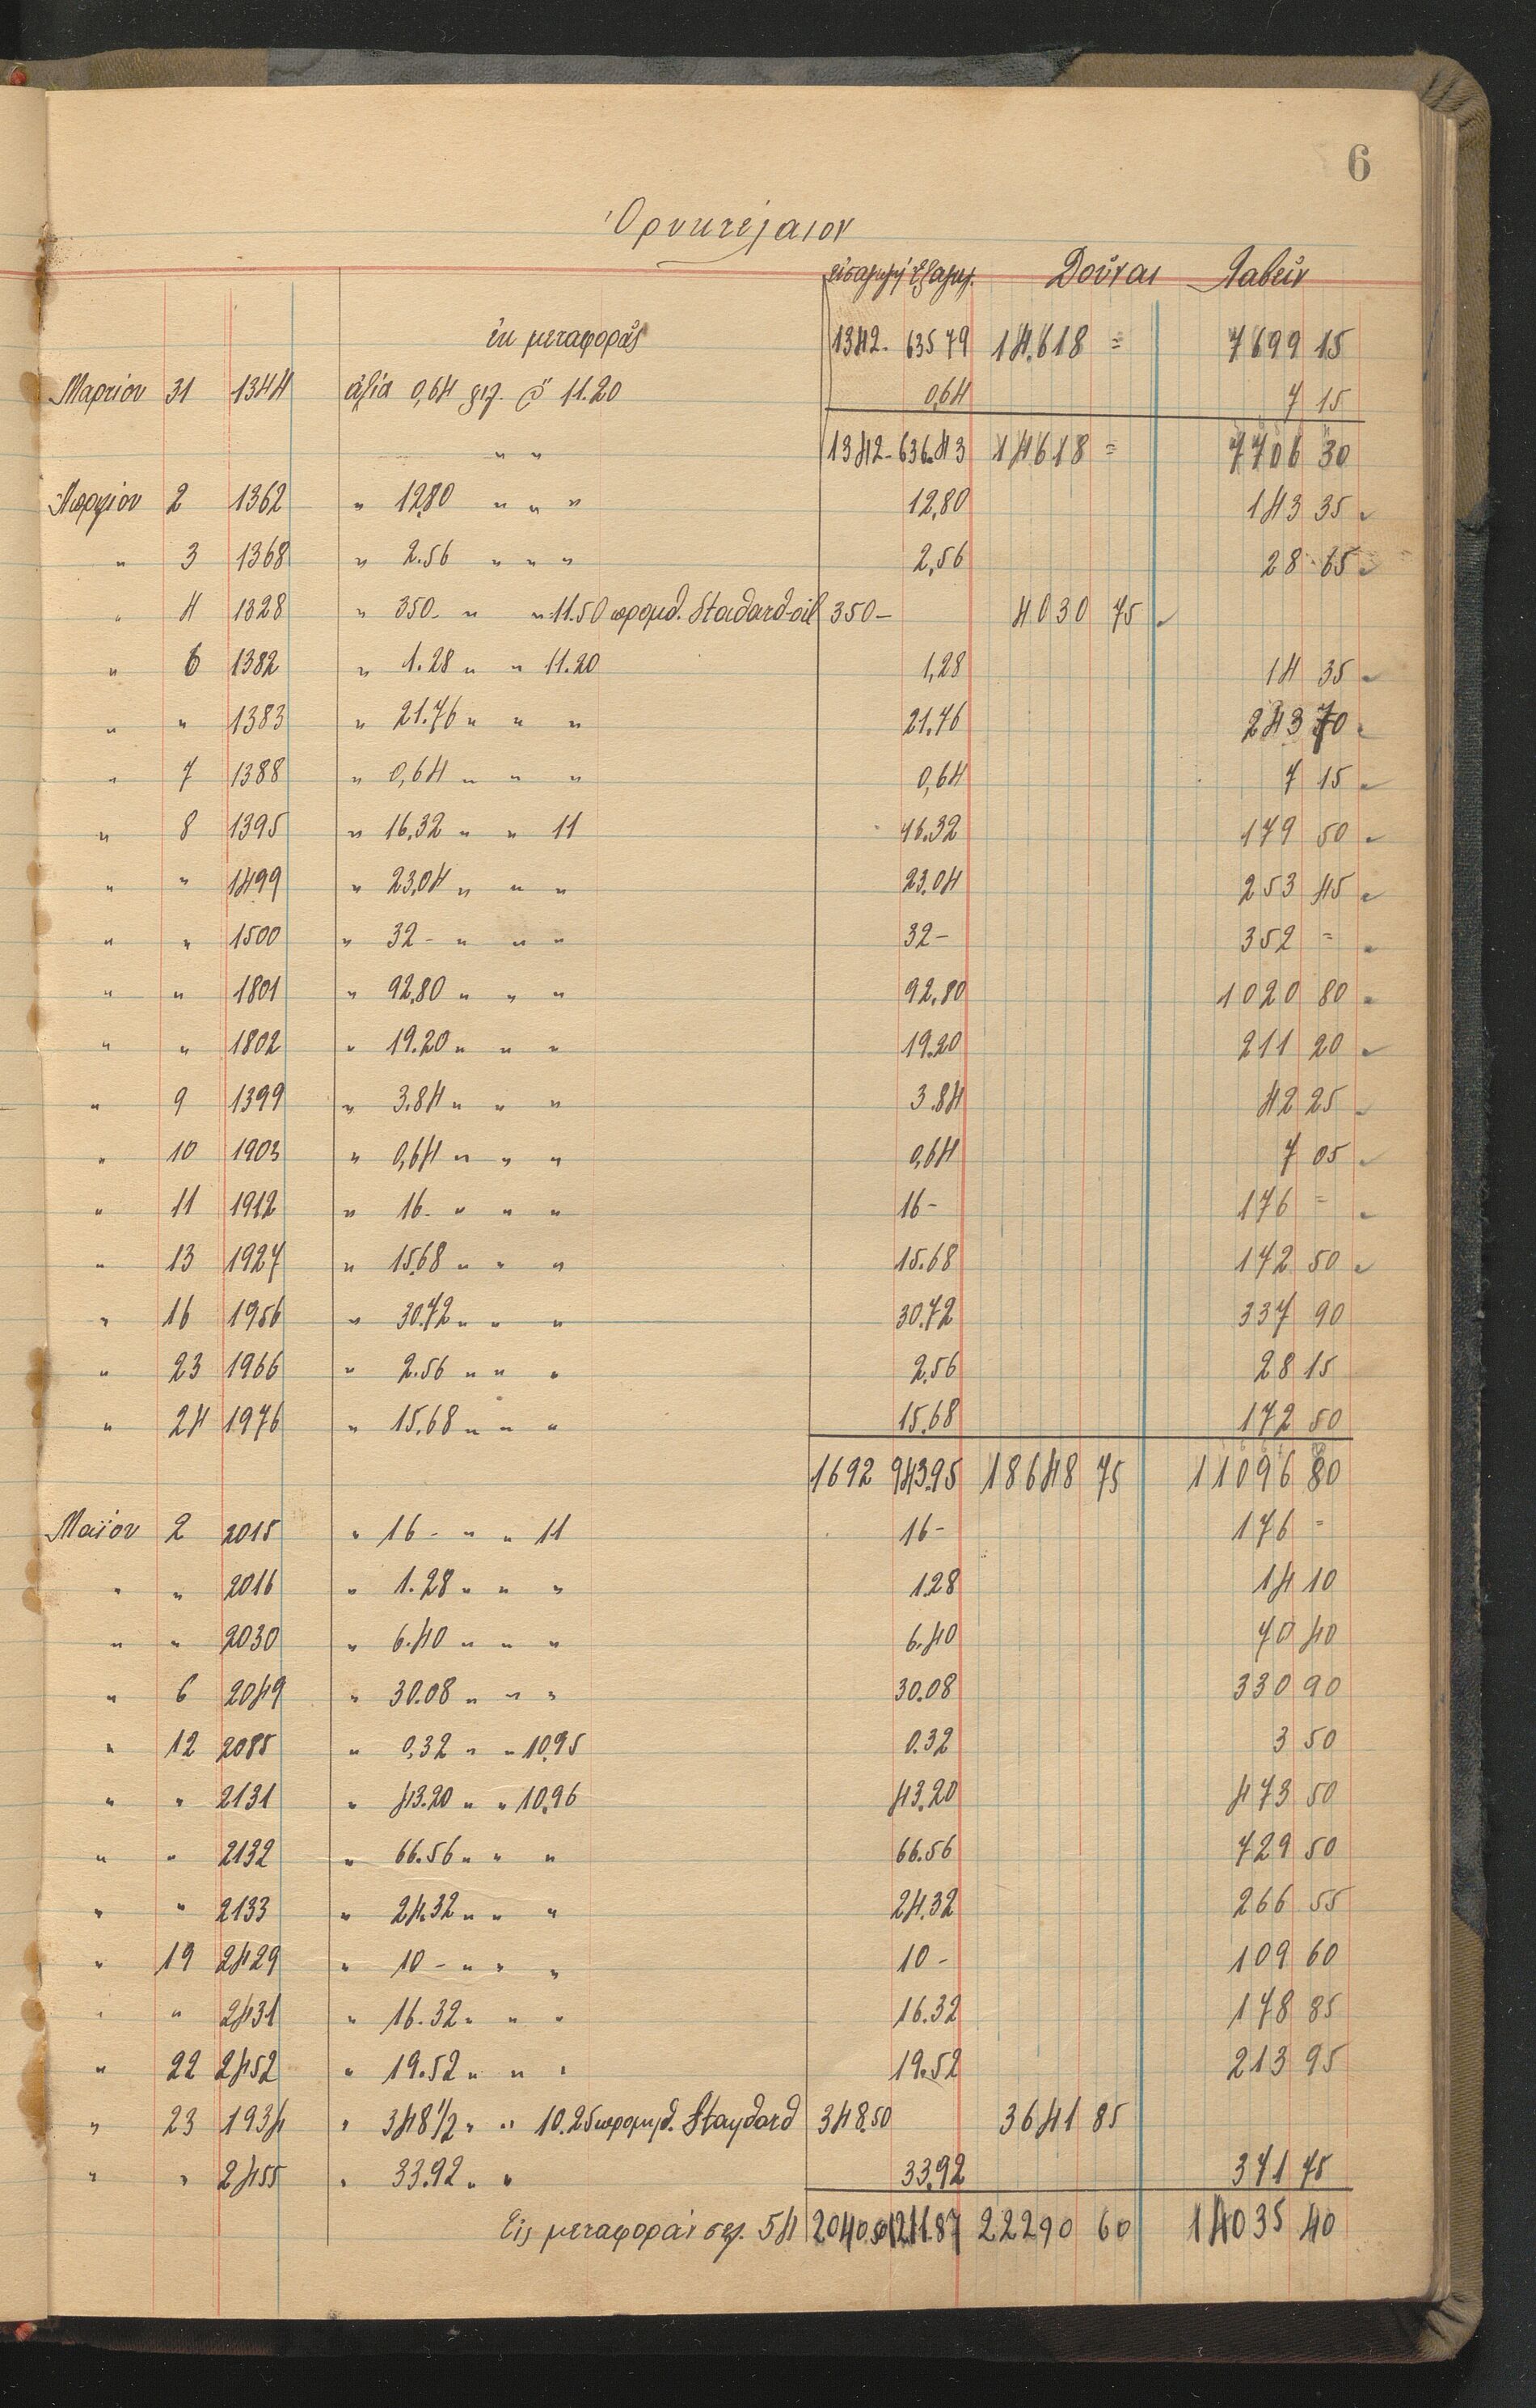 6
Ὀρυκτέλαιον
εἰσαγωγὴ ἐξαγωγ. Δοῦναι Λαβεῖν
ἐκ μεταφορᾶς 1342.- 635 79 14.618 = 7699 15
Μαρτίου 31 1344 ἀξία 0,64 χιλ. @ 11.20 0,64 7 15
" " 1342.- 636.43 14618 = 7706 30
Ἀπριλίου 2 1362 " 12,80 " " " 12,80 143 35
" 3 1368 " 2.56 " " " 2,56 28 65
" 4 1328 " 350- " " 11.50 προμηθ. Standard-oil 350- 4030 75
" 6 1382 " 1.28 " " 11.20 1,28 14 35
" " 1383 " 21.76 " " " 21.76 243 70
" 7 1388 " 0,64 " " " 0,64 7 15
" 8 1395 " 16,32 " " 11 16.32 179 50
" " 1499 " 23,04 " " " 23.04 253 45
" " 1500 " 32- " " " 32- 352 =
" " 1801 " 92,80 " " " 92,80 1020 80
" " 1802 " 19.20 " " " 19.20 211 20
" 9 1399 " 3.84 " " " 3.84 42 25
" 10 1903 " 0,64 " " " 0,64 7 05
" 11 1912 " 16- " " " 16- 176 =
" 13 1927 " 15,68 " " " 15.68 172 50
" 16 1956 " 30.72 " " " 30.72 337 90
" 23 1966 " 2.56 " " " 2.56 28 15
" 24 1976 " 15.68 " " " 15.68 172 50
1692 943.95 18648 75 11096 80
Μαΐου 2 2015 " 16- " " 11 16- 176 =
" " 2016 " 1.28 " " " 1.28 14 10
" " 2030 " 6.40 " " " 6.40 70 40
" 6 2049 " 30.08 " " " 30.08 330 90
" 12 2085 " 0,32 " " 10,95 0.32 3 50
" " 2131 " 43.20 " " 10,96 43.20 473 50
" " 2132 " 66.56 " " " 66.56 729 50
" " 2133 " 24.32 " " " 24.32 266 55
" 19 2429 " 10- " " " 10- 109 60
" " 2431 " 16.32 " " " 16.32 178 85
" 22 2452 " 19.52 " " " 19.52 213 95
" 23 1934 " 348 1/2 " " 10.25 προμηθ. Standard 348.50 3641 85
" " 2455 " 33.92 " " 33.92 371 75
Εἰς μεταφορὰν σελ. 54 2040.50 1211.87 22290 60 14035 40